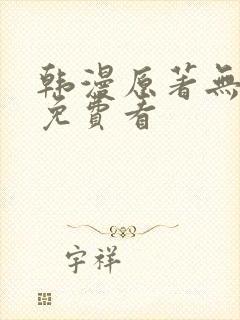 韩漫原著無
免費看
宇祥